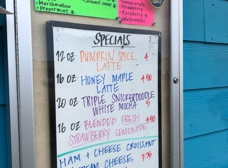 Marshmallow
Peppermint
Raspberry
SPECIALS
12 OZ PUMPKIN SPICE 4
LATTE
16 OZ HONEY MAPLE 4.50
LATTE
20 OZ TRIPLE SNICKERDOODLE 5
WHITE MOCHA
16 OZ BLENDED FRESH 4.50
STRAWBERRY LEMONADE
HAM & CHEESE CROISSANT
HAM, CHEESE,